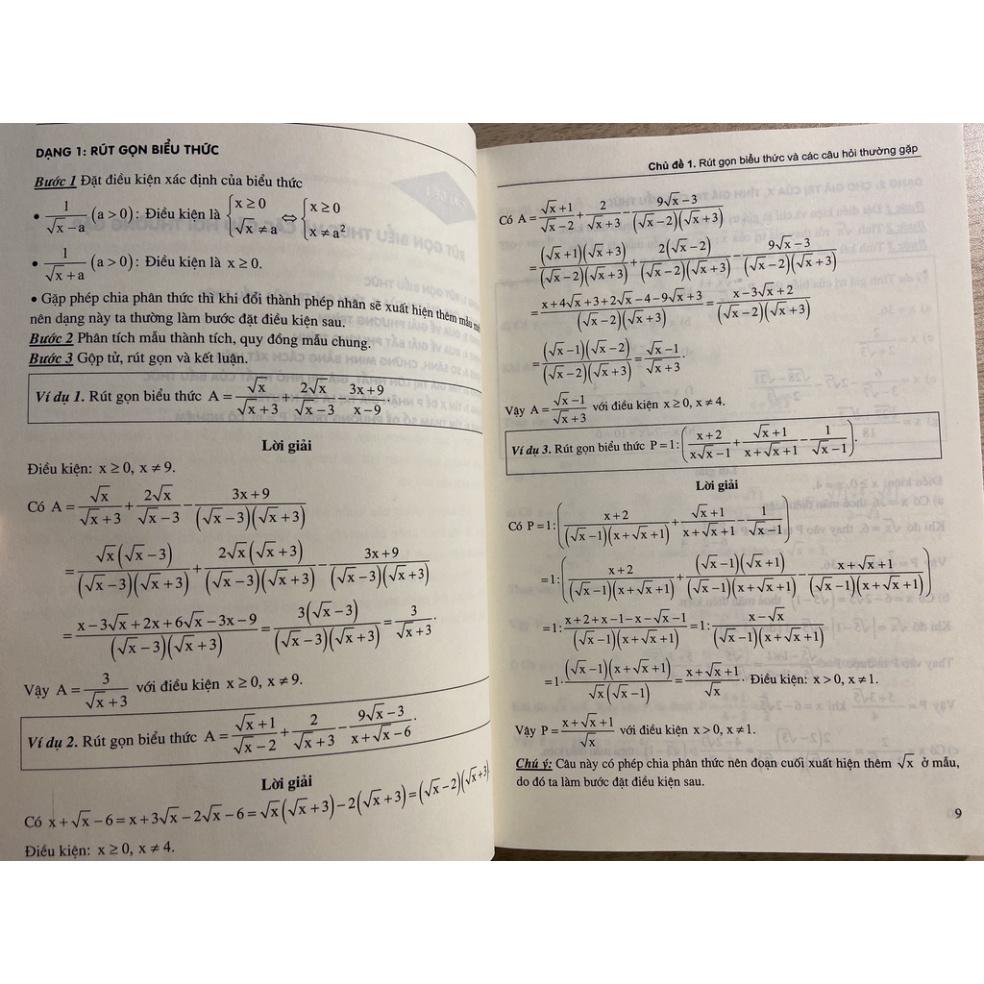 DẠNG 1: RÚT GỌN BIỂU THỨC
Bước 1 Đặt điều kiện xác định của biểu thức
• 1/(√x − a) (a > 0): Điều kiện là {x ≥ 0; √x ≠ a ⇔ {x ≥ 0; x ≠ a²
• 1/(√x + a) (a > 0): Điều kiện là x ≥ 0.
• Gặp phép chia phân thức thì khi đổi thành phép nhân sẽ xuất hiện thêm mẫu
nên dạng này ta thường làm bước đặt điều kiện sau.
Bước 2 Phân tích mẫu thành tích, quy đồng mẫu chung.
Bước 3 Gộp tử, rút gọn và kết luận.
Ví dụ 1. Rút gọn biểu thức A = √x/(√x + 3) + 2√x/(√x − 3) − (3x + 9)/(x − 9).
Lời giải
Điều kiện: x ≥ 0, x ≠ 9.
Có A = √x/(√x + 3) + 2√x/(√x − 3) − (3x + 9)/((√x − 3)(√x + 3))
= √x(√x − 3)/((√x − 3)(√x + 3)) + 2√x(√x + 3)/((√x − 3)(√x + 3)) − (3x + 9)/((√x − 3)(√x + 3))
= (x − 3√x + 2x + 6√x − 3x − 9)/((√x − 3)(√x + 3)) = 3(√x − 3)/((√x − 3)(√x + 3)) = 3/(√x + 3).
Vậy A = 3/(√x + 3) với điều kiện x ≥ 0, x ≠ 9.
Ví dụ 2. Rút gọn biểu thức A = (√x + 1)/(√x − 2) + 2/(√x + 3) − (9√x − 3)/(x + √x − 6).
Lời giải
Có x + √x − 6 = x + 3√x − 2√x − 6 = √x(√x + 3) − 2(√x + 3) = (√x − 2)(√x + 3)
Điều kiện: x ≥ 0, x ≠ 4.
Chủ đề 1. Rút gọn biểu thức và các câu hỏi thường gặp
Có A = (√x + 1)/(√x − 2) + 2/(√x + 3) − (9√x − 3)/((√x − 2)(√x + 3))
= (√x + 1)(√x + 3)/((√x − 2)(√x + 3)) + 2(√x − 2)/((√x − 2)(√x + 3)) − (9√x − 3)/((√x − 2)(√x + 3))
= (x + 4√x + 3 + 2√x − 4 − 9√x + 3)/((√x − 2)(√x + 3)) = (x − 3√x + 2)/((√x − 2)(√x + 3))
= (√x − 1)(√x − 2)/((√x − 2)(√x + 3)) = (√x − 1)/(√x + 3).
Vậy A = (√x − 1)/(√x + 3) với điều kiện x ≥ 0, x ≠ 4.
Ví dụ 3. Rút gọn biểu thức P = 1 : ((x + 2)/(x√x − 1) + (√x + 1)/(x + √x + 1) − 1/(√x − 1)).
Lời giải
Có P = 1 : ((x + 2)/((√x − 1)(x + √x + 1)) + (√x + 1)/(x + √x + 1) − 1/(√x − 1))
= 1 : ((x + 2)/((√x − 1)(x + √x + 1)) + (√x − 1)(√x + 1)/((√x − 1)(x + √x + 1)) − (x + √x + 1)/((√x − 1)(x + √x + 1)))
= 1 : (x + 2 + x − 1 − x − √x − 1)/((√x − 1)(x + √x + 1)) = 1 : (x − √x)/((√x − 1)(x + √x + 1))
= 1 · (√x − 1)(x + √x + 1)/(√x(√x − 1)) = (x + √x + 1)/√x. Điều kiện: x > 0, x ≠ 1.
Vậy P = (x + √x + 1)/√x với điều kiện x > 0, x ≠ 1.
Chú ý: Câu này có phép chia phân thức nên đoạn cuối xuất hiện thêm √x ở mẫu,
do đó ta làm bước đặt điều kiện sau.
9